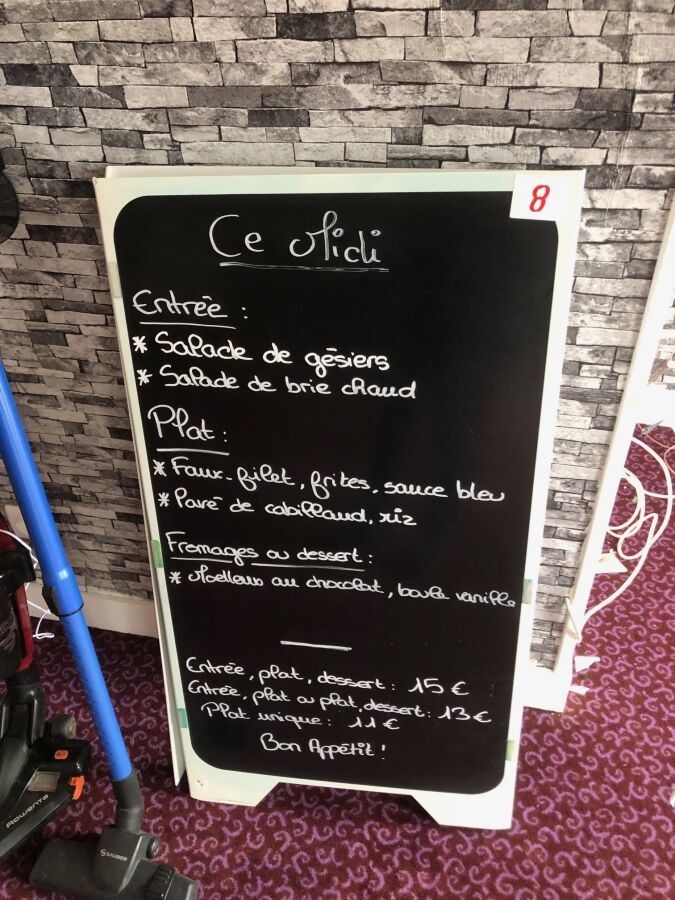 8
Ce Midi
Entrée :
* Salade de gésiers
* Salade de brie chaud
Plat :
* Faux-filet, frites, sauce bleu
* Pavé de cabillaud, riz
Fromages ou dessert :
* Moelleux au chocolat, boule vanille
Entrée, plat, dessert : 15 €
Entrée, plat ou plat, dessert : 13 €
Plat unique : 11 €
Bon Appétit !
Rowenta
SAUBER